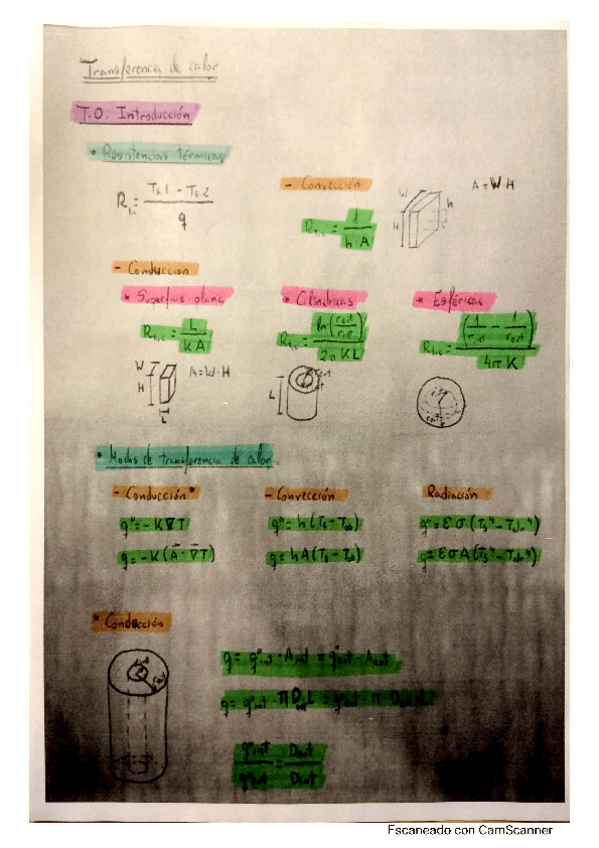 Transferencia de calor
T.0. Introducción
* Resistencias térmicas
R_t,c = (T_s,1 - T_s,2) / q
- Convección
R_t,c = 1 / (h·A)
W
H
h
A = W·H
- Conduccion
* Superficie plana
R_t,c = L / (KA)
W
H
L
A = W·H
* Cilindricas
R_t,c = ln(r_ext / r_int) / (2π K L)
L
r_ext
r_int
* Esféricas
R_t,c = (1/r_int - 1/r_ext) / (4π K)
* Modos de transferencia de calor
- Conducción*
q'' = -K∇T
q = -K(A·∇T)
- Convección
q'' = h(Ts - T∞)
q = hA(Ts - T∞)
Radiación
q'' = εσ(Ts⁴ - T∞⁴)
q = εσA(Ts⁴ - T∞⁴)
* Conducción
q = q''int · Aint = q''ext · Aext
q = q''int · π Dint L = q''ext · π · Dext L
q''int / q''ext = Dext / Dint
Escaneado con CamScanner